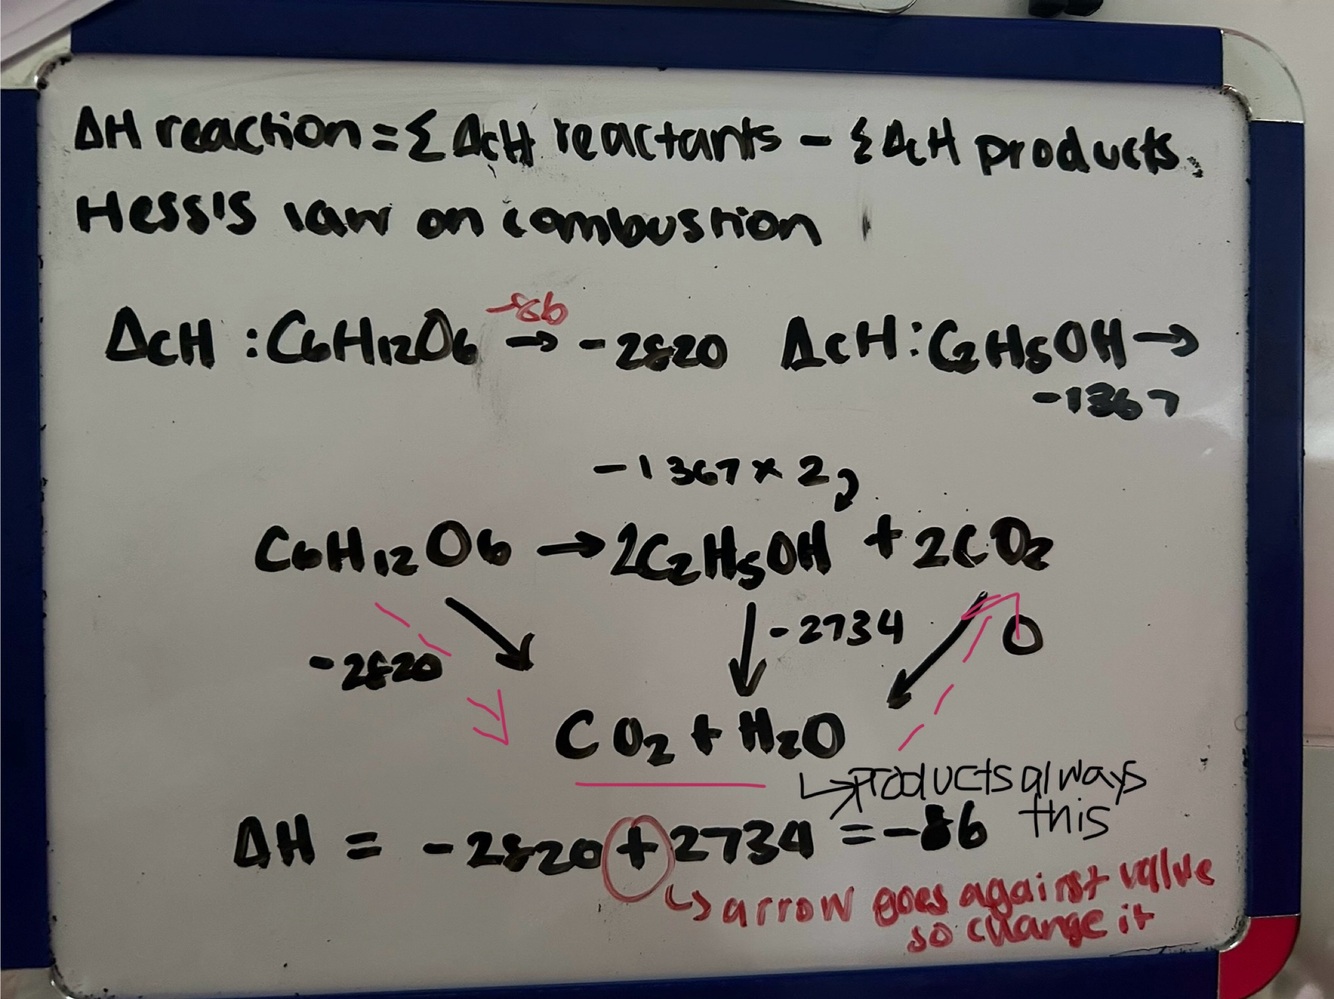 ΔH reaction = Σ ΔcH reactants - Σ ΔcH products.
Hess's law on combustion
-86
ΔcH : C6H12O6 → -2820 ΔcH : C2H5OH →
-1367
-1367 x 2
C6H12O6 → 2C2H5OH + 2CO2
-2820
-2734
0
CO2 + H2O
↳ products always
this
ΔH = -2820 + 2734 = -86
↳ arrow goes against value
so change it